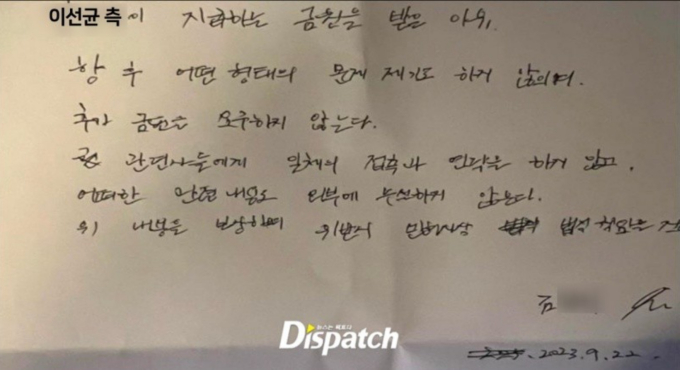 이선균 측이 지급하는 금원을 받은 이후,
향 후 어떤 형태의 문제 제기도 하지 않으며.
추가 금원을 요구하지 않는다.
관련자들에게 일체의 접촉과 연락을 하지 않고.
어떠한 관련 내용도 외부에 누설하지 않는다.
위 내용을 보장하며 위반시 민형사상 법적 책임은
김
뉴스는 팩트다
Dispatch
2023.9.22.